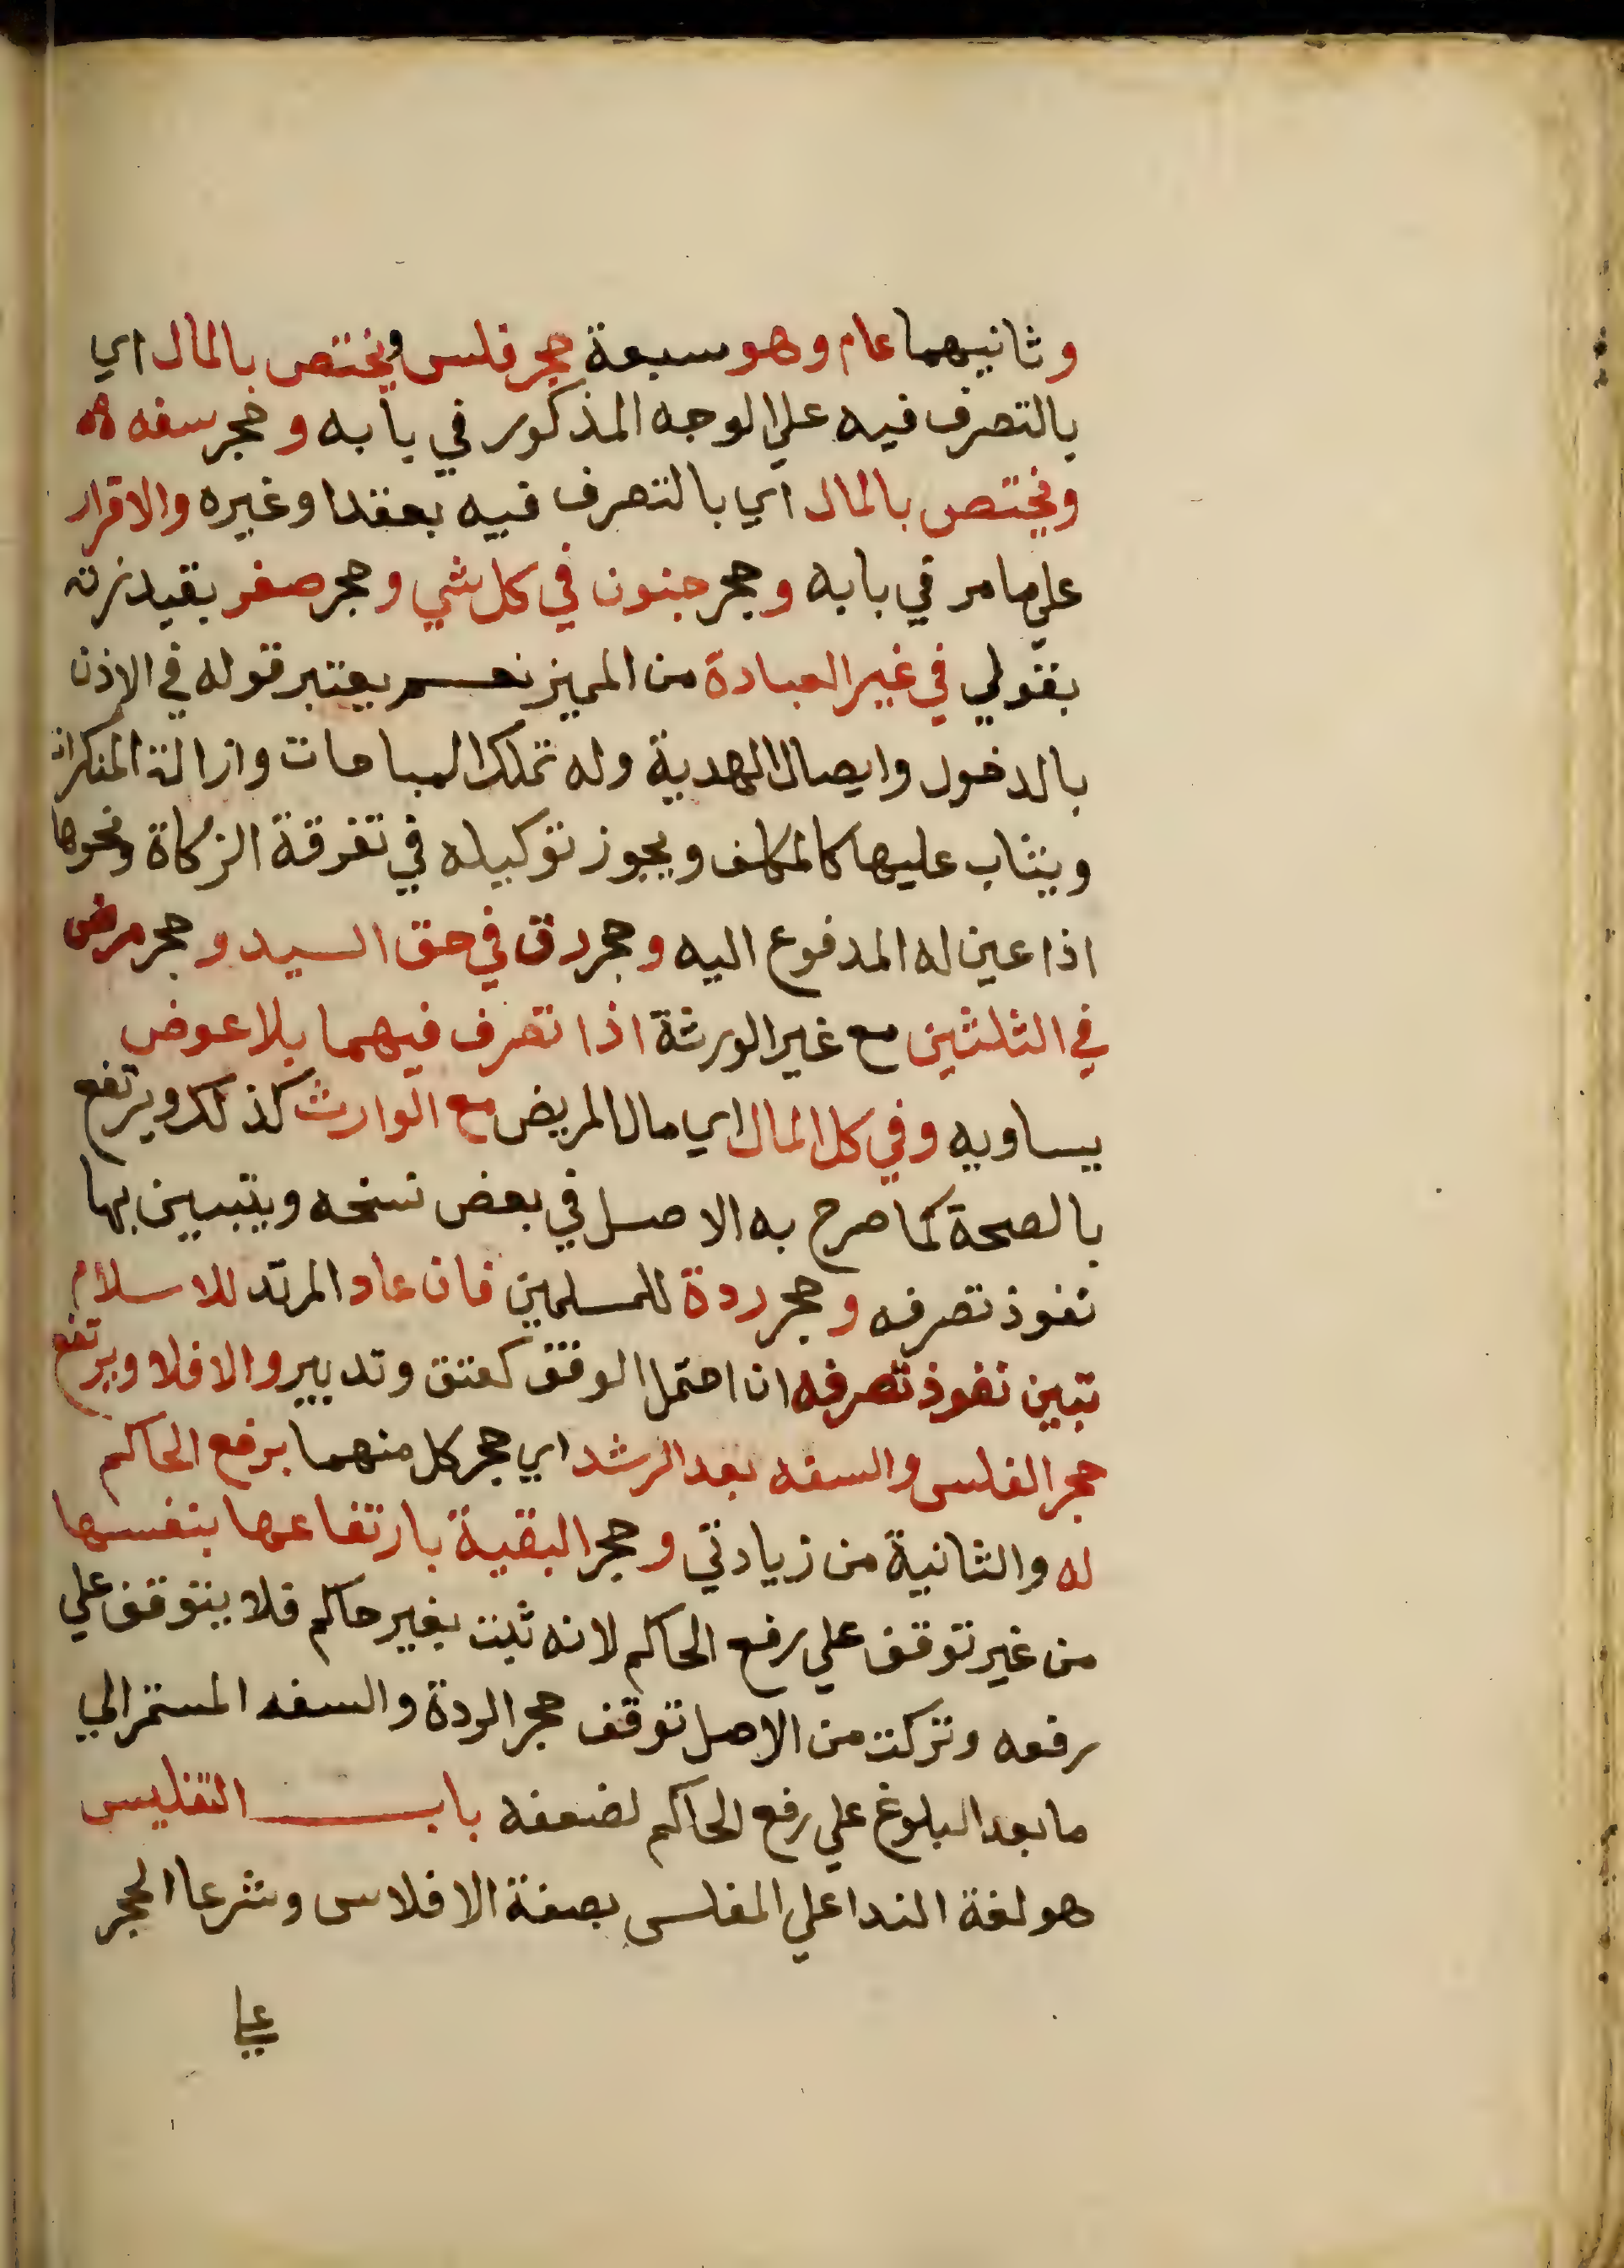 وثانيهما عام وهو سبعة حجر فلس ويختص بالمال اي
بالتصرف فيه علي الوجه المذكور في بابه وحجر سفه
ويختص بالمال اي بالتصرف فيه بعقد او غيره والاقرار
علي ما مر في بابه وحجر جنون في كل شي وحجر صغر بقيد زدته
بقولي في غير العبادة من المميز نعم يعتبر قوله في الاذن
بالدخول وايصال الهدية وله تملك المباحات وازالة المنكرات
ويثاب عليها كالمكلف ويجوز توكيله في تفرقة الزكاة ونحوها
اذا عين له المدفوع اليه وحجر رق في حق السيد وحجر مرض
في الثلثين مع غير الورثة اذا تصرف فيهما بلا عوض
يساويه وفي كل المال اي مال المريض مع الوارث كذلك ويرتفع
بالصحة كما صرح به الاصل في بعض نسخه ويتبين بها
نفوذ تصرفه وحجر ردة للمسلمين فان عاد المرتد للاسلام
تبين نفوذ تصرفه ان احتمل الوقف كعتق وتدبير والا فلا ويرتفع
حجر الفلس والسفه بعد الرشد اي حجر كل منهما برفع الحاكم
له والثانية من زيادتي وحجر البقية بارتفاعها بنفسها
من غير توقف علي رفع الحاكم لانه ثبت بغير حاكم فلا يتوقف علي
رفعه وتركت من الاصل توقف حجر الردة والسفه المستمر الي
ما بعد البلوغ علي رفع الحاكم لضعفه باب التفليس
هو لغة الندا علي المفلس بصفة الافلاس وشرعا الحجر
علي